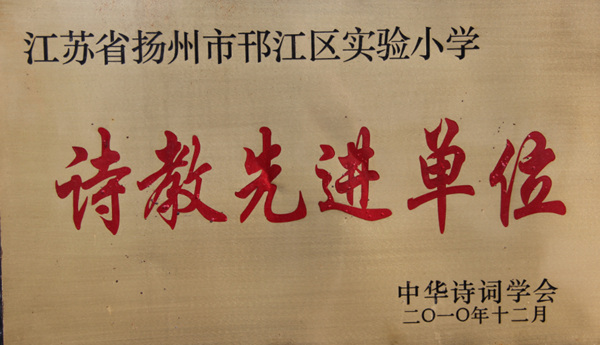 江苏省扬州市邗江区实验小学
诗教先进单位
中华诗词学会
二〇一〇年十二月